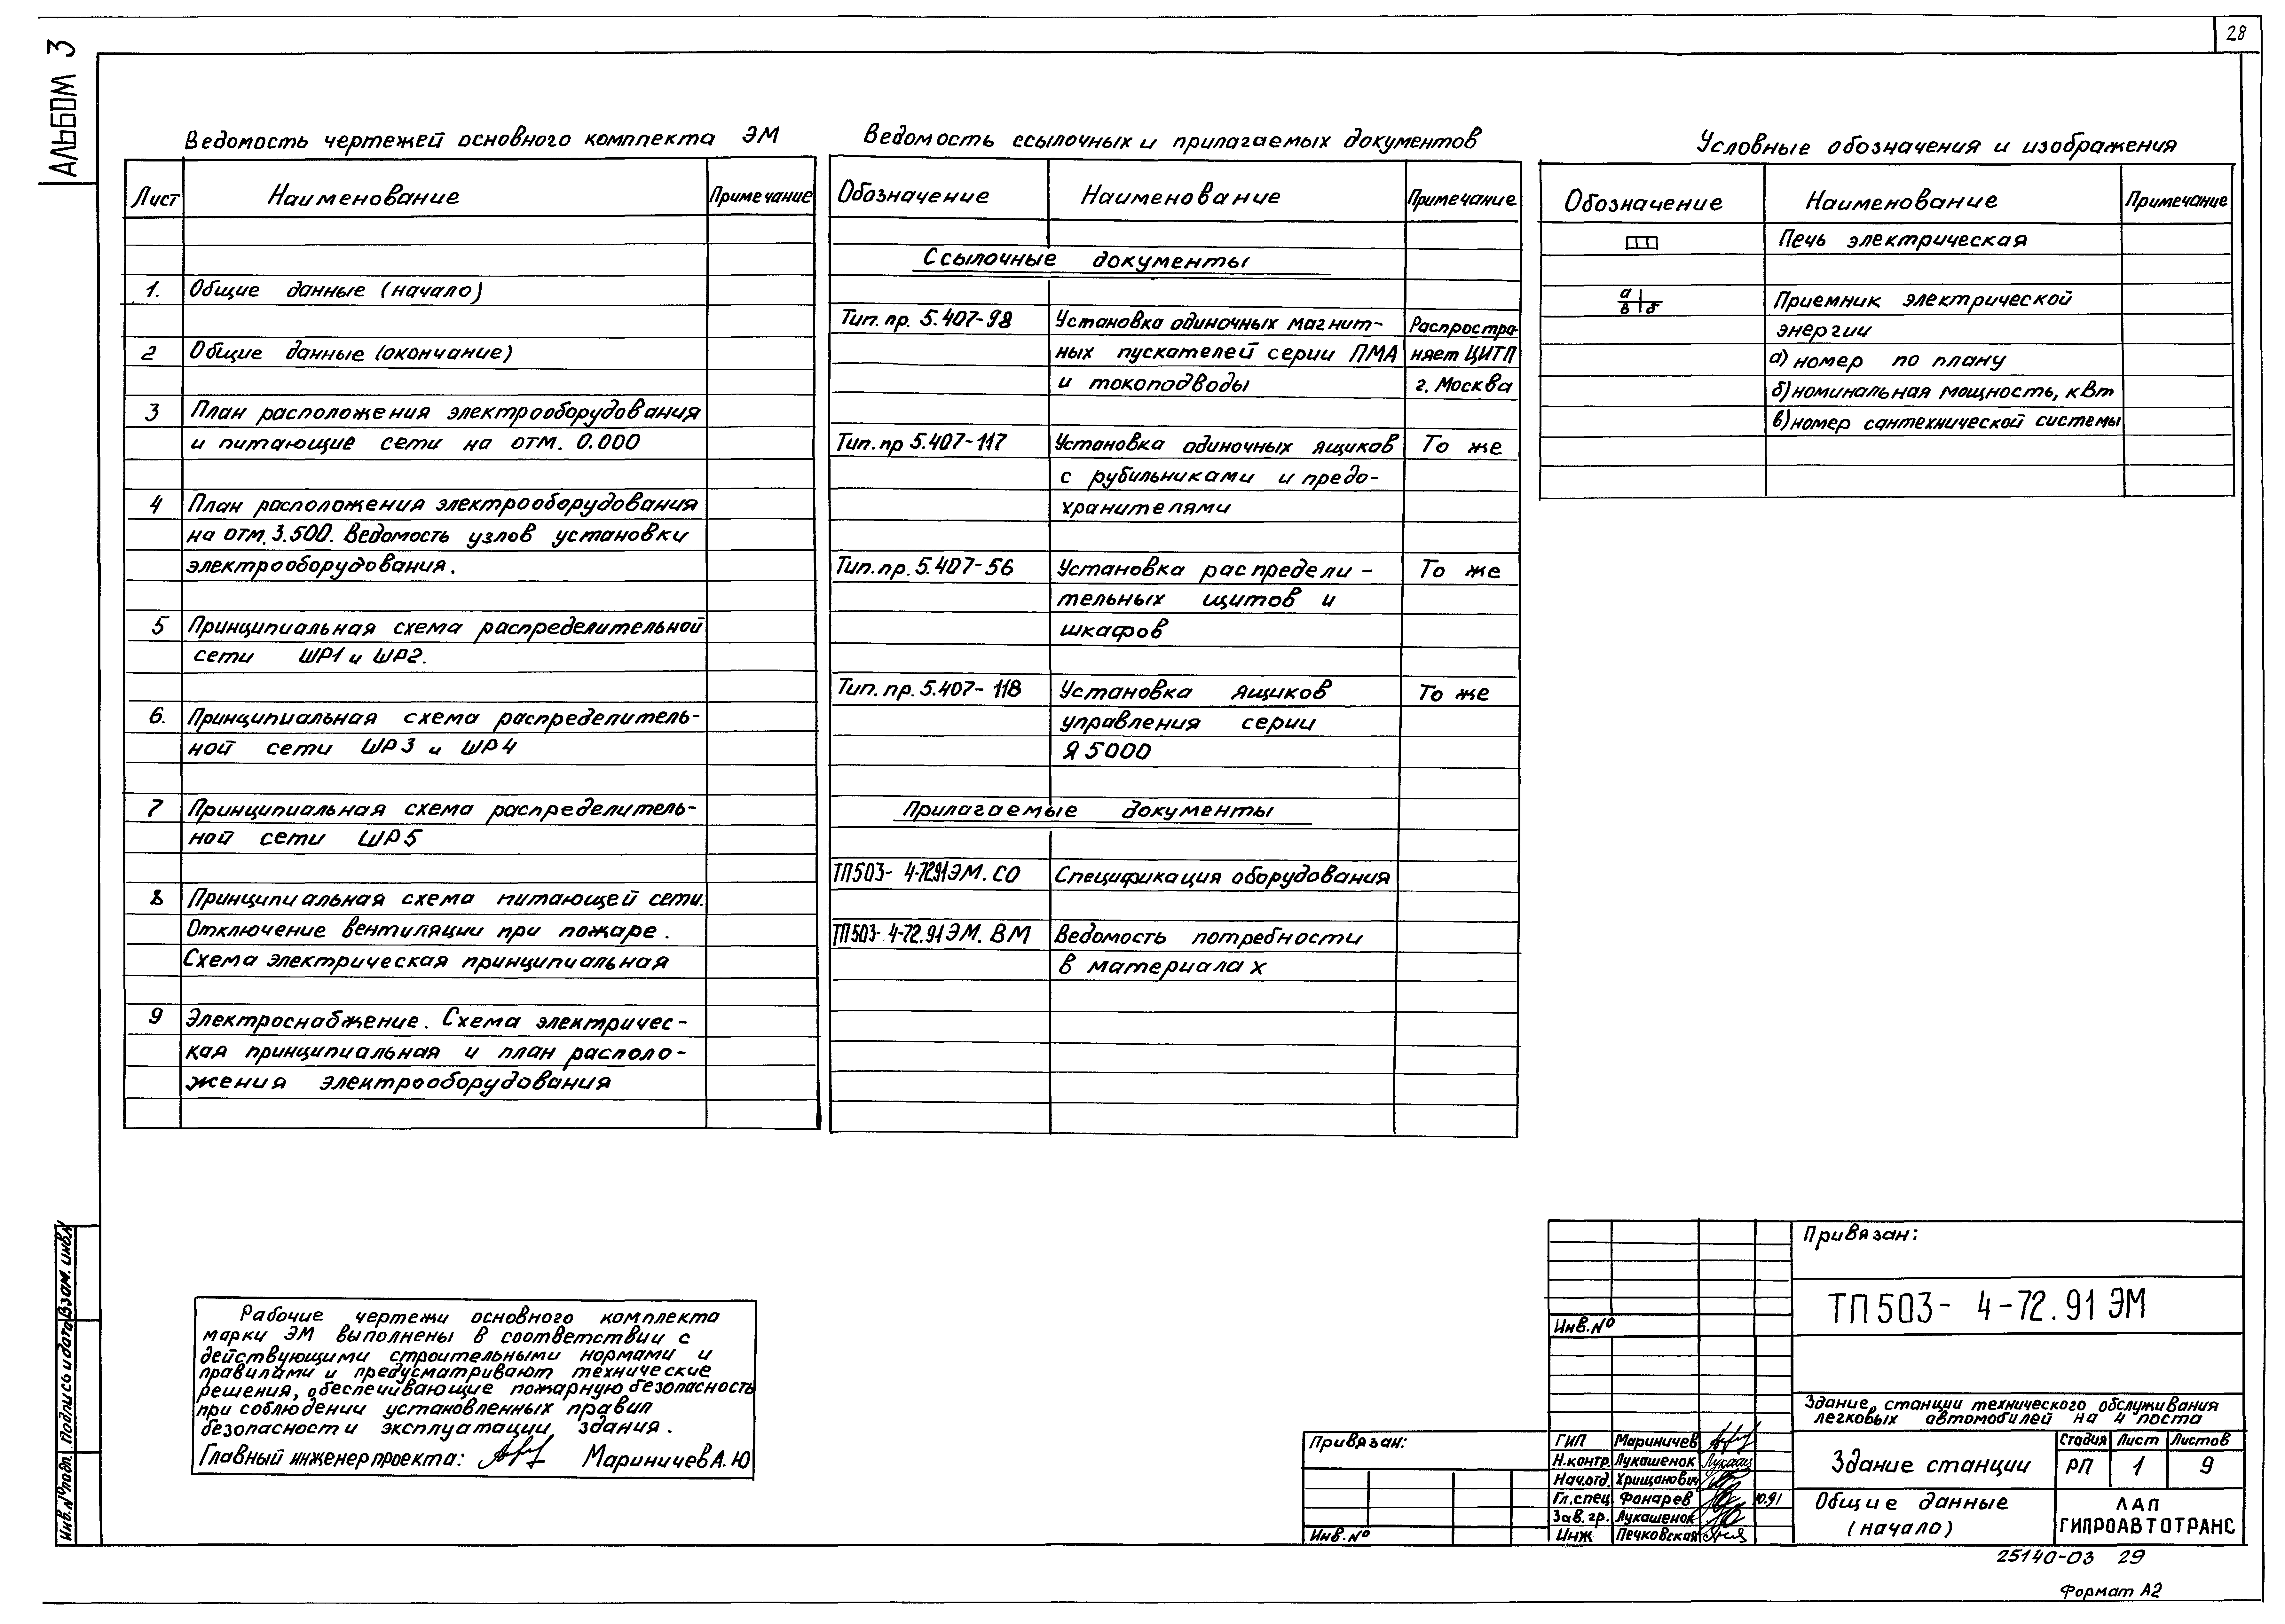 28
АЛЬБОМ 3
Ведомость чертежей основного комплекта ЭМ
Лист Наименование Примечание
1. Общие данные (начало)
2 Общие данные (окончание)
3 План расположения электрооборудования
и питающие сети на отм. 0.000
4 План расположения электрооборудования
на отм. 3.500. Ведомость узлов установки
электрооборудования.
5 Принципиальная схема распределительной
сети ШР1 и ШР2.
6. Принципиальная схема распределитель-
ной сети ШР3 и ШР4
7 Принципиальная схема распределитель-
ной сети ШР5
8 Принципиальная схема питающей сети.
Отключение вентиляции при пожаре.
Схема электрическая принципиальная
9 Электроснабжение. Схема электричес-
кая принципиальная и план располо-
жения электрооборудования
Ведомость ссылочных и прилагаемых документов
Обозначение Наименование Примечание
Ссылочные документы
Тип. пр. 5.407-98 Установка одиночных магнит- Распростра-
ных пускателей серии ПМА няет ЦИТП
и токоподводы г. Москва
Тип. пр 5.407-117 Установка одиночных ящиков То же
с рубильниками и предо-
хранителями
Тип. пр. 5.407-56 Установка распредели- То же
тельных щитов и
шкафов
Тип. пр. 5.407-118 Установка ящиков То же
управления серии
Я 5000
Прилагаемые документы
ТП503- 4-72.91 ЭМ. СО Спецификация оборудования
ТП503- 4-72.91 ЭМ. ВМ Ведомость потребности
в материалах
Условные обозначения и изображения
Обозначение Наименование Примечание
Печь электрическая
а Приемник электрической
в б
энергии
а) номер по плану
б) номинальная мощность, кВт
в) номер сантехнической системы
Рабочие чертежи основного комплекта
марки ЭМ выполнены в соответствии с
действующими строительными нормами и
правилами и предусматривают технические
решения, обеспечивающие пожарную безопасность
при соблюдении установленных правил
безопасности эксплуатации здания.
Главный инженер проекта: Мариничев А.Ю
Инв. № подл. Подпись и дата Взам. инв. №
Привязан:
Инв. №
Привязан:
Инв. №
ТП503- 4-72.91 ЭМ
Здание станции технического обслуживания
легковых автомобилей на 4 поста
ГИП Мариничев
Н.контр. Лукашенок
Нач.отд. Хрищанович
Гл.спец Фонарев 10.91
Зав. гр. Лукашенок
Инж Печковская
Здание станции
Стадия Лист Листов
РП 1 9
Общие данные
(начало)
ЛАП
ГИПРОАВТОТРАНС
25140-03 29
Формат А2